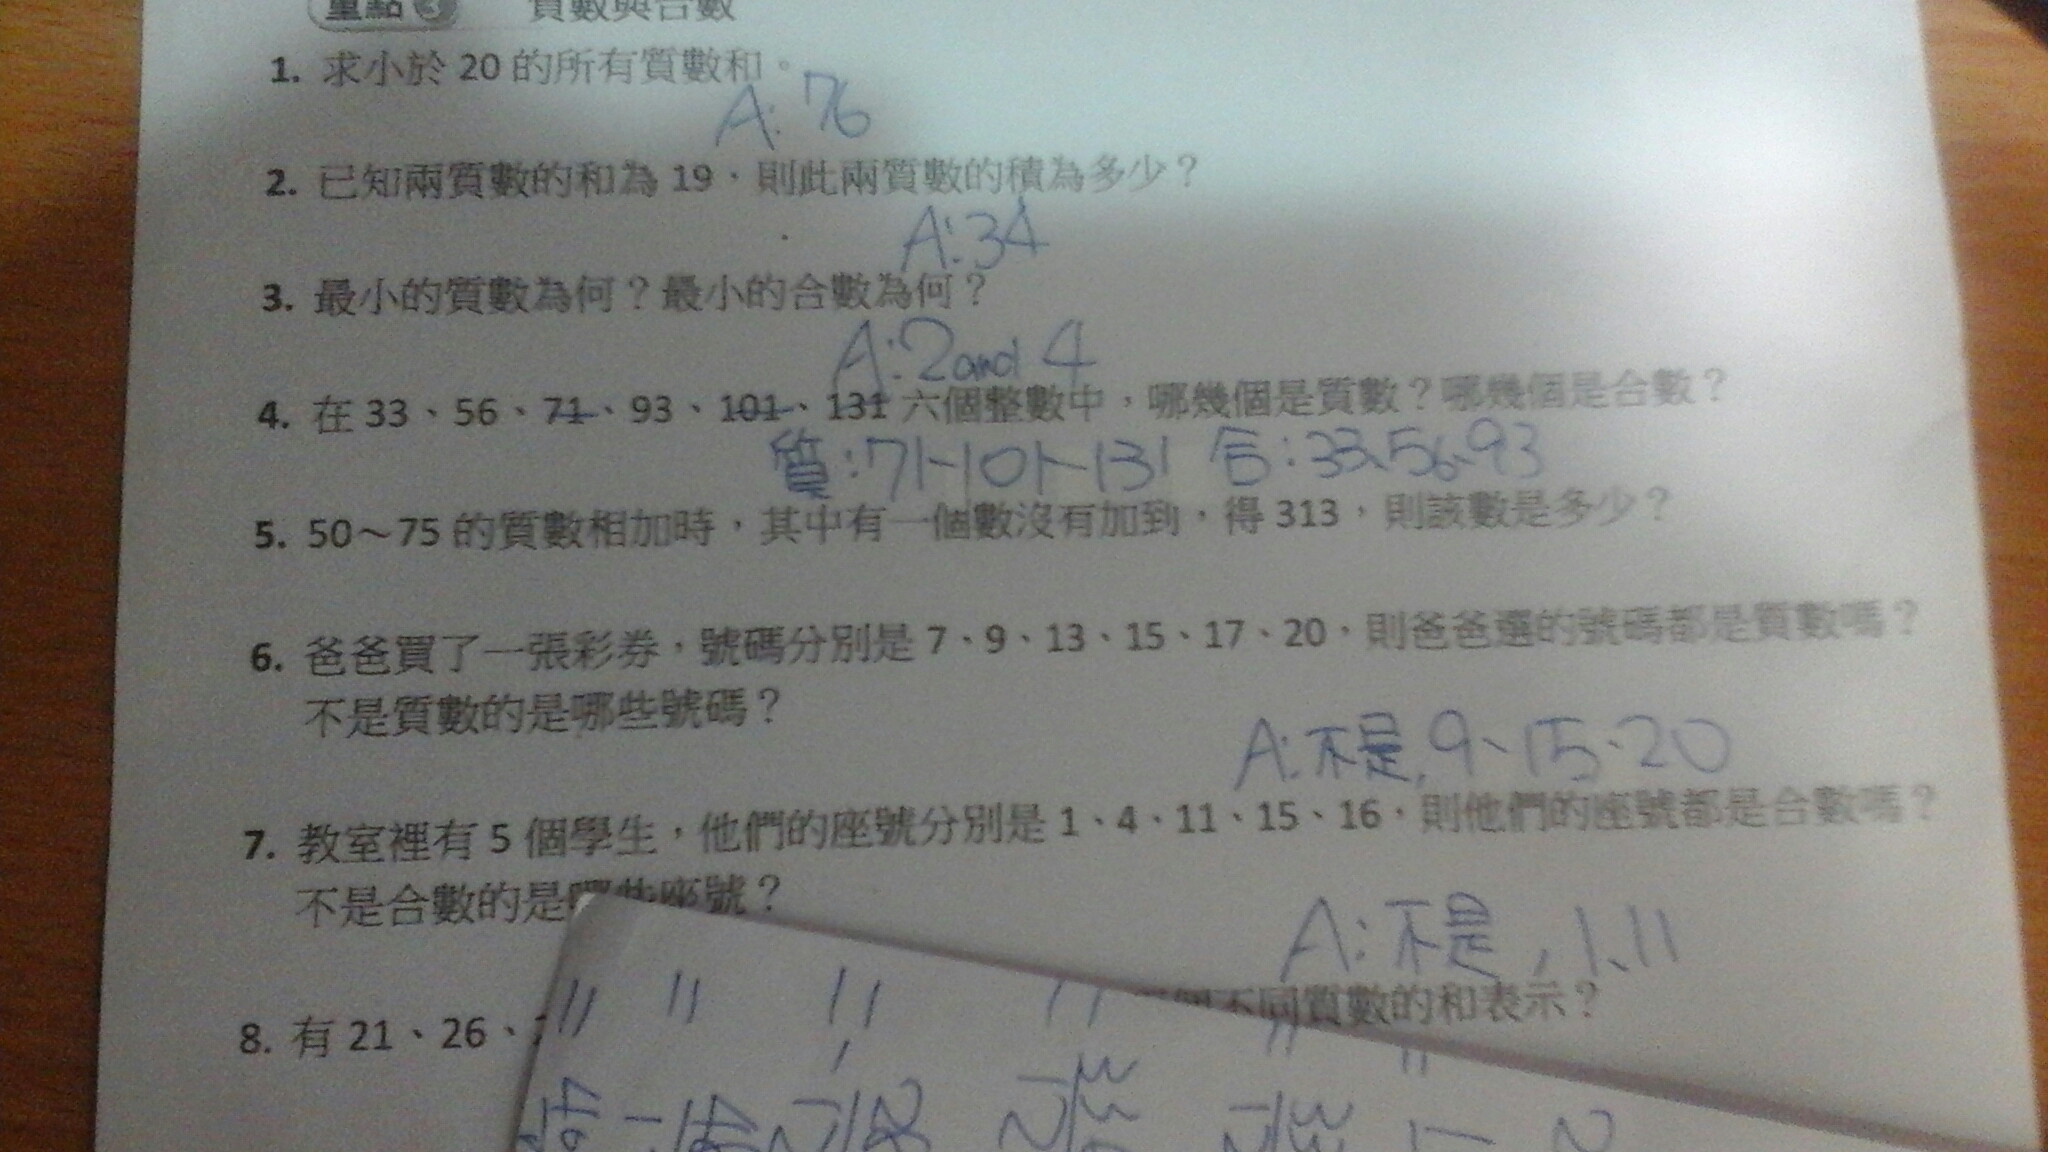 重點 3 質數與合數
1. 求小於 20 的所有質數和。
A: 76
2. 已知兩質數的和為 19，則此兩質數的積為多少？
A:34
3. 最小的質數為何？最小的合數為何？
A:2and 4
4. 在 33、56、71、93、101、131 六個整數中，哪幾個是質數？哪幾個是合數？
質:71、101、131 合:33、56、93
5. 50～75 的質數相加時，其中有一個數沒有加到，得 313，則該數是多少？
6. 爸爸買了一張彩券，號碼分別是 7、9、13、15、17、20，則爸爸選的號碼都是質數嗎？
不是質數的是哪些號碼？
A:不是,9、15、20
7. 教室裡有 5 個學生，他們的座號分別是 1、4、11、15、16，則他們的座號都是合數嗎？
不是合數的是哪些座號？
A:不是,1、11
8. 有 21、26、 不同質數的和表示？